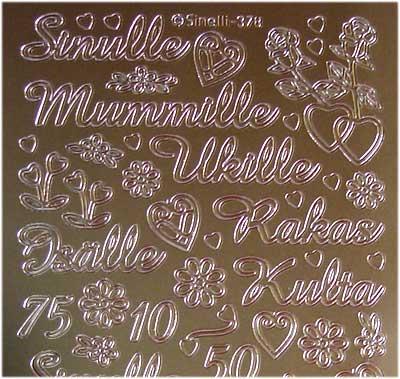 ©Sinelli-378
Sinulle
Mummille
Ukille
Rakas
Isälle
Kulta
75 10
Sinulle 50